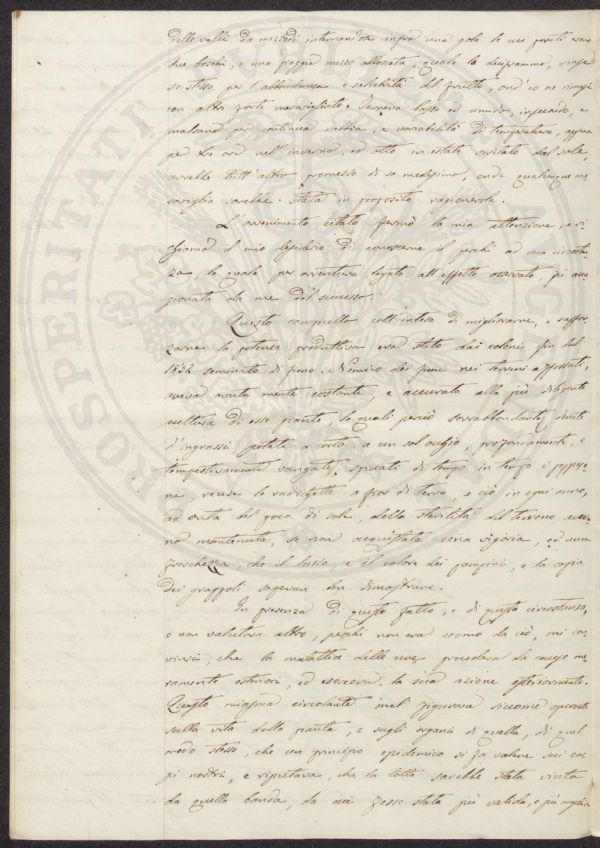 delle valli da mezzodì internandosi infra una gola le cui pareti erano
due boschi, e una poggia mezzo alborata, quale la descrivemmo, vinse
se stesso per l'abbondanza e salubrità del frutto, ond'io ne rimasi
con altri forte meravigliato. Terreno basso ed umido, infecondo, e
malsano per continua nebbia, e variabilità di temperatura, appena
per tre ore nell'inverno, ed otto in estate visitato dal sole,
avrebbe tutt'altro promesso di se medesimo, onde qualunque me-
raviglia sarebbe stata in proposito ragionevole.
L'avvenimento citato fermò la mia attenzione, e ri-
chiamò il mio desiderio di conoscerne il perché ad una circostan-
za, la quale per avventura legata all'effetto osservato, fu cau-
gionata da me del successo.
Questo campicello coll'intesa di migliorarne, e raffor-
zarne la potenza produttiva era stato dai coloni fin dal
1852 seminato di fieno. Nemico dei fieni nei terreni appossati,
aveva avuta mente costante, e accurata alla più diligente
cultura di esse piante, le quali perciò sovrabbondante dovute
l'ingrassi potate a corto, a un sol occhio, profondamente, e
tempestivamente vangate, spicciati di tempo in tempo e
ne recise le radichette a fior di terra, e ciò in ogni anno,
ad onta del poco di sole, della sterilità del terreno ave-
vano mantenuta, se non acquistata una vigoria, ed una
freschezza, che il lusso, e il colore dei pampini, e la copia
dei grappoli sapevan ben dimostrare.
In presenza di questo fatto, e di questa circostanza,
e non valutava altro, perché non era uomo da ciò, mi con-
vinsi, che la malattia delle uve procedeva da cause me-
ramente esteriori, ed eserceva la sua azione esteriormente.
Questo miasma circolante me'l figurava siccome operante
sulla vita della pianta, e sugli organi di quella, di quel
modo stesso, che un principio epidemico si fa valere sui cor-
pi nostri, e riputava, che la lotta sarebbe stata vinta
da quella banda, da cui fosse stata più valida, e più